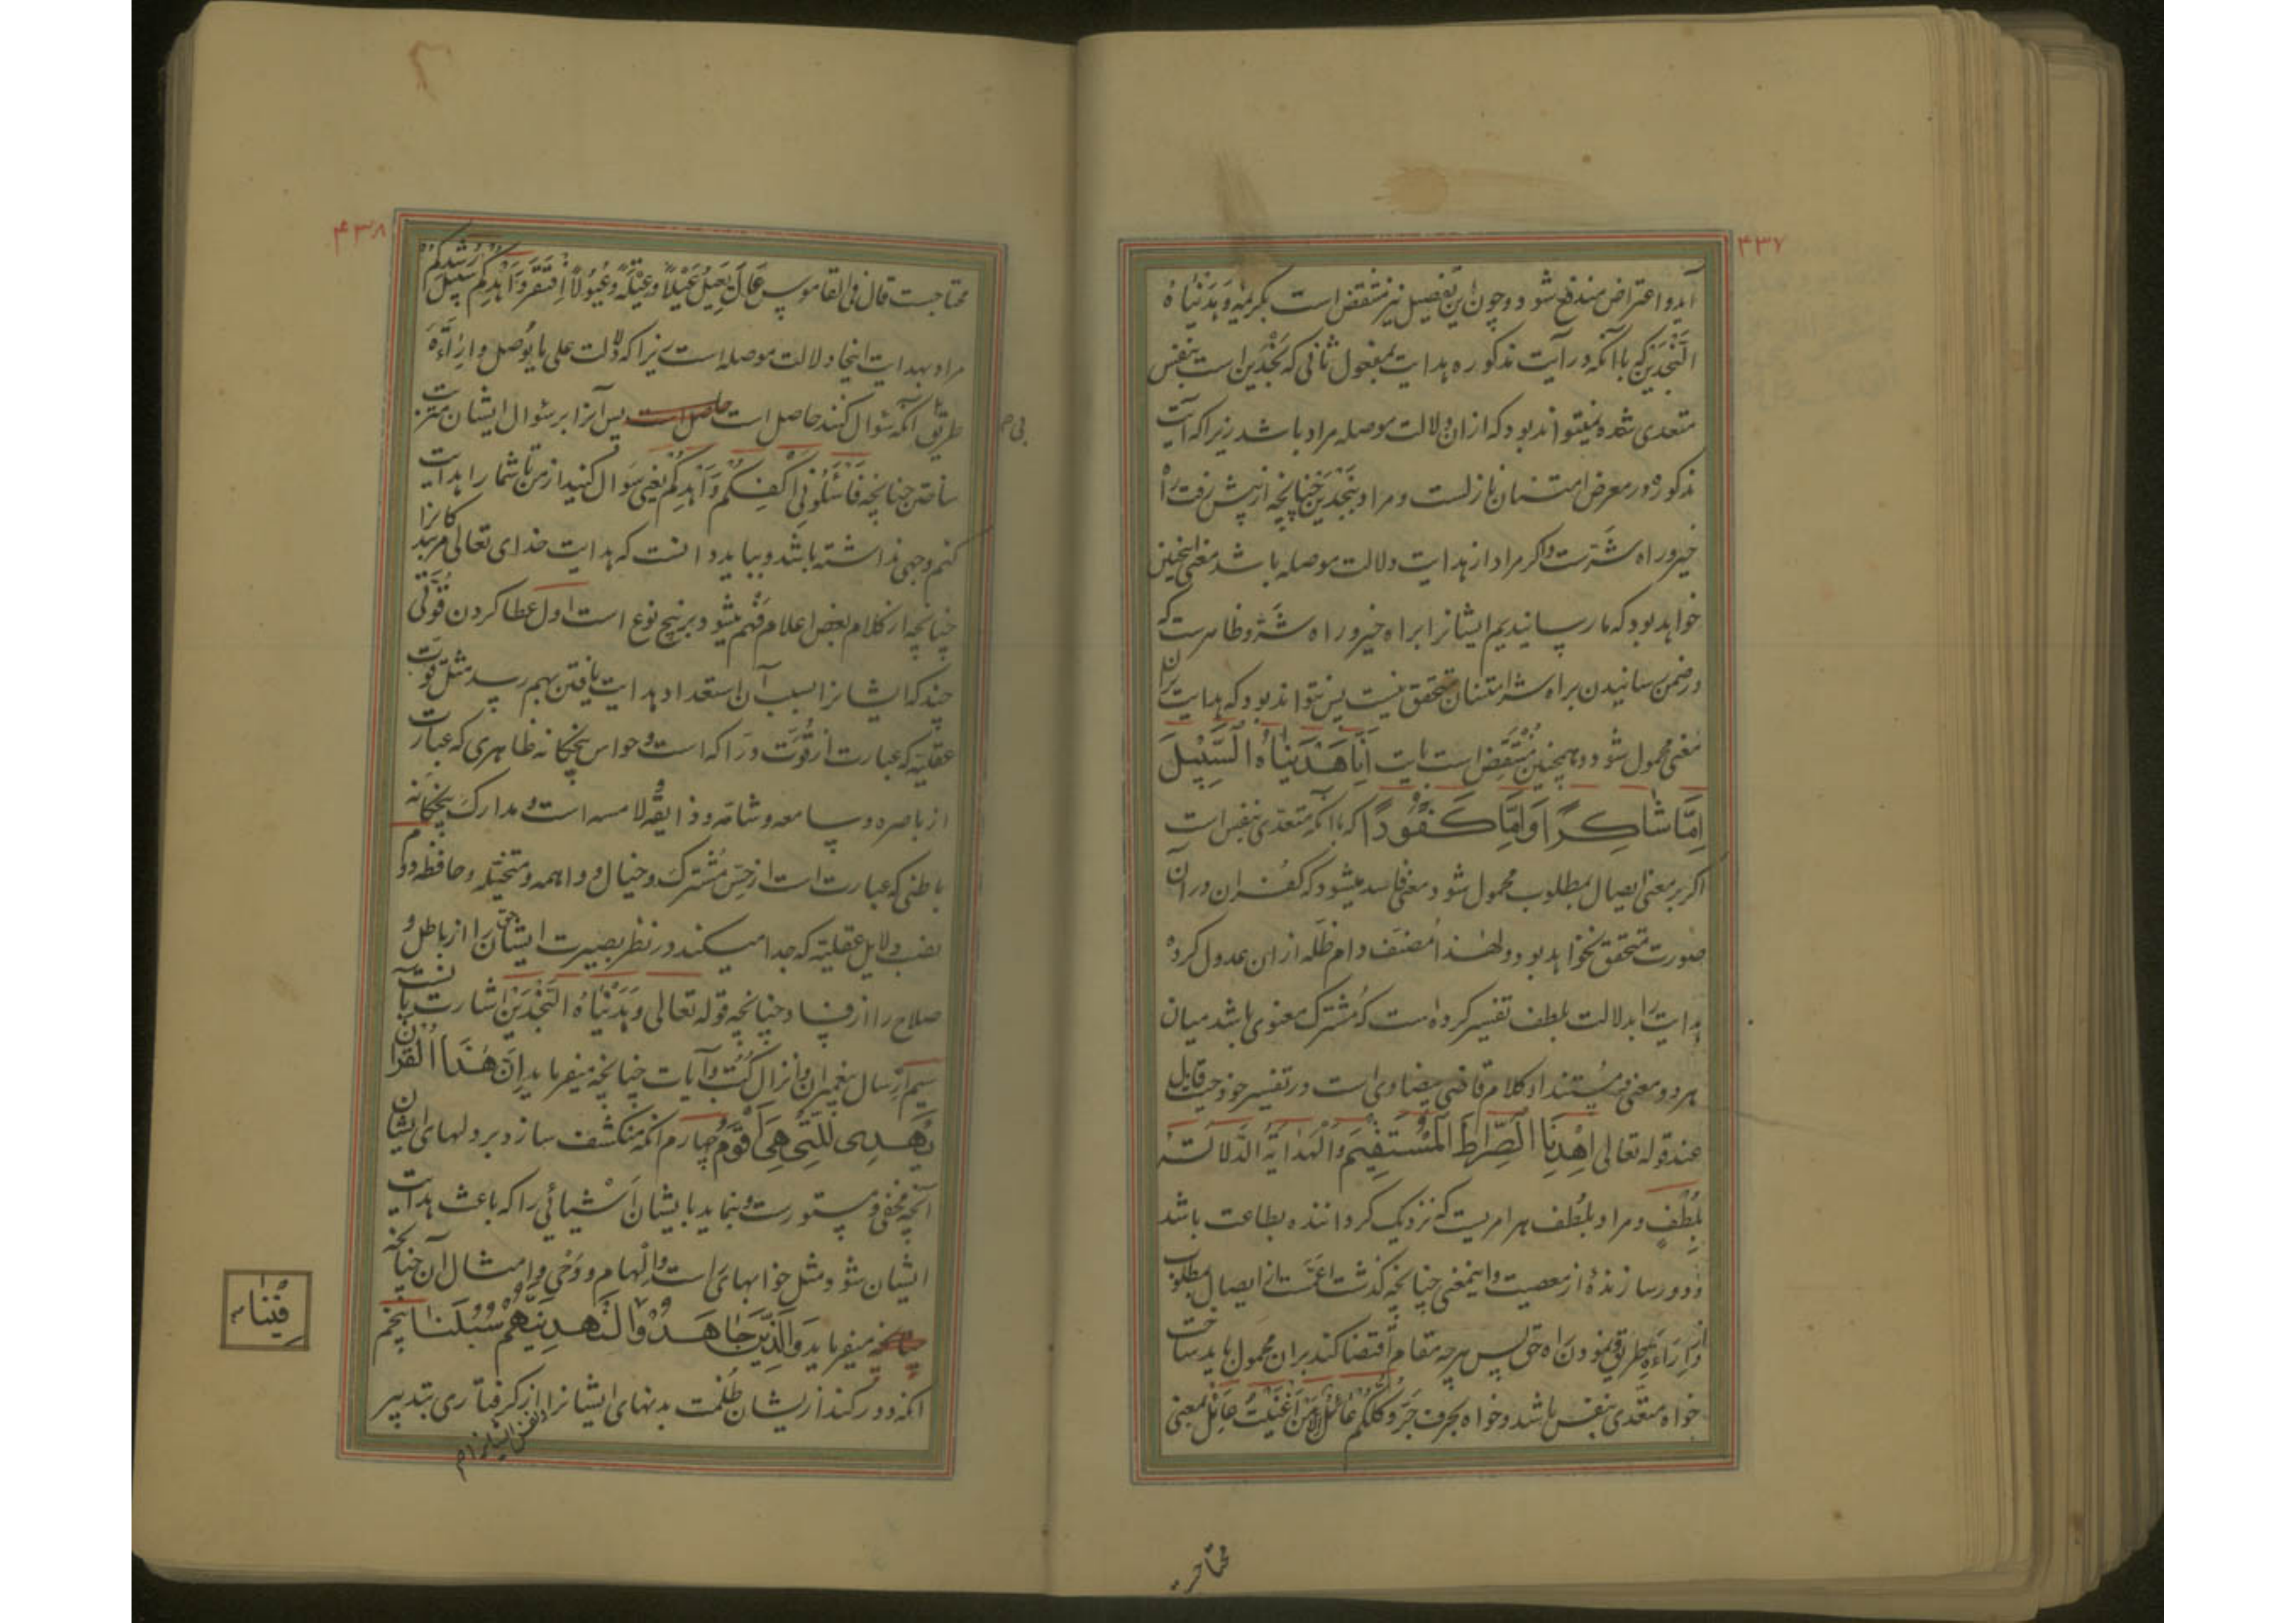 ۴۳۷
آید و اعتراض مندفع شود و چون این تفصیل نیز منتقض است بکریمه وَهَدَیْنَاهُ
النَّجْدَیْنِ که با آنکه در آیت مذکوره هدایت بمفعول ثانی که نجدین است بنفس
متعدی شده نمیتواند بود که ازان دلالت موصله مراد باشد زیرا که آیت
مذکوره در معرض امتنان نازلست و مراد بنجدین چنانچه از پیش رفت راه
خیر و راه شرّست و اکر مراد از هدایت دلالت موصله باشد معنی اینچنین
خواهد بود که ما رسانیدیم ایشانرا براه خیر و راه شر و ظاهرست که
در ضمن رسانیدن براه شر امتنان متحقق نیست پس نتواند بود که هدایت بران
معنی محمول شود و همچنین منتقض است بآیت اِنَّا هَدَیْنَاهُ السَّبِیْلَ
اِمَّا شَاکِرًا وَاِمَّا کَفُوْرًا که با آنکه متعدّی بنفس است
اکر بر معنی ایصال بمطلوب محمول شود معنی فاسد میشود که کفران در آن
صورت متحقق نخواهد بود و لهذا مصنف دام ظله ازان عدول کرده
هدایت را بدلالت بلطف تفسیر کرده است که مشترک معنوی باشد میان
هر دو معنی و مستند او کلام قاضی بیضاوی است در تفسیر خود حیث قال
عند قوله تعالی اِهْدِنَا الصِّرَاطَ الْمُسْتَقِیْمَ وَالْهِدَایَةُ الدَّلَالَةُ
بِلُطْفٍ و مراد بلطف هر امریست که نزدیک کرداننده بطاعت باشد
و دور سازنده از معصیت و اینمعنی چنانچه کذشت اعمّست از ایصال بمطلوب
و از اِراءَةِ طریق و نمودن راه حق پس هرچه مقام اقتضا کند بران محمول باید ساخت
خواه متعدّی بنفس باشد و خواه بحرف جر وَکُلُّکُمْ عَائِلٌ اِلَّا مَنْ اَغْنَیْتُ عائل بمعنی
محتاجست
۴۳۸
محتاجست قال فی القاموس عَالَ یَعِیْلُ عَیْلًا وَعَیْلَةً وَعُیُوْلًا اِفْتَقَرَ وَاَهْدِکُمْ سَبِیْلَ رُشْدِکُمْ
مراد بهدایت اینجا دلالت موصله است زیرا که دلالت علی ما یوصل و اِراءَة
طریق بی آنکه سؤال کنند حاصل است پس آنرا بر سؤال ایشان مترتب
ساختن چنانچه فَاسْئَلُوْنِیْ اَکْفِکُمْ وَاَهْدِکُمْ یعنی سؤال کنید از من تا شما را هدایت
کنم وجهی نداشته باشد و بباید دانست که هدایت خدای تعالی مر بندکانرا
چنانچه از کلام بعض اعلام فهم میشود بر پنج نوع است اول عطا کردن قوّتی
چند که ایشانرا بسبب آن استعداد هدایت یافتن بهم رسد مثل قوّت
عقلیّه که عبارت از قوّت درّاکه است و حواس پنجکانه ظاهری که عبارت
از باصره و سامعه و شامّه و ذایقه و لامسه است و مدارک پنجکانه
باطنی که عبارت است از حس مشترک و خیال و واهمه و متخیله و حافظه دوم
نصب دلایل عقلیّه که جدا میکند در نظر بصیرت ایشان حق را از باطل و
صلاح را از فساد چنانچه قوله تعالی وَهَدَیْنَاهُ النَّجْدَیْنِ اشارت بآنست
سیم اِرسال پیغمبران و انزال کتب و آیات چنانچه میفرماید اِنَّ هٰذَا الْقُرْاٰنَ
یَهْدِی لِلَّتِیْ هِیَ اَقْوَمُ چهارم آنکه منکشف سازد بر دلهای ایشان
آنچه مخفی و مستورست و بنماید بایشان اشیائی را که باعث هدایت
ایشان شود مثل خوابهای راست و الهام و وحی و امثال آن چنانچه
میفرماید وَالَّذِیْنَ جَاهَدُوْا لَنَهْدِیَنَّهُمْ سُبُلَنَا پنجم
فِیْنَا
آنکه دور کند از یشان ظلمت بدنهای ایشانرا از کرفتاری بتدبیر